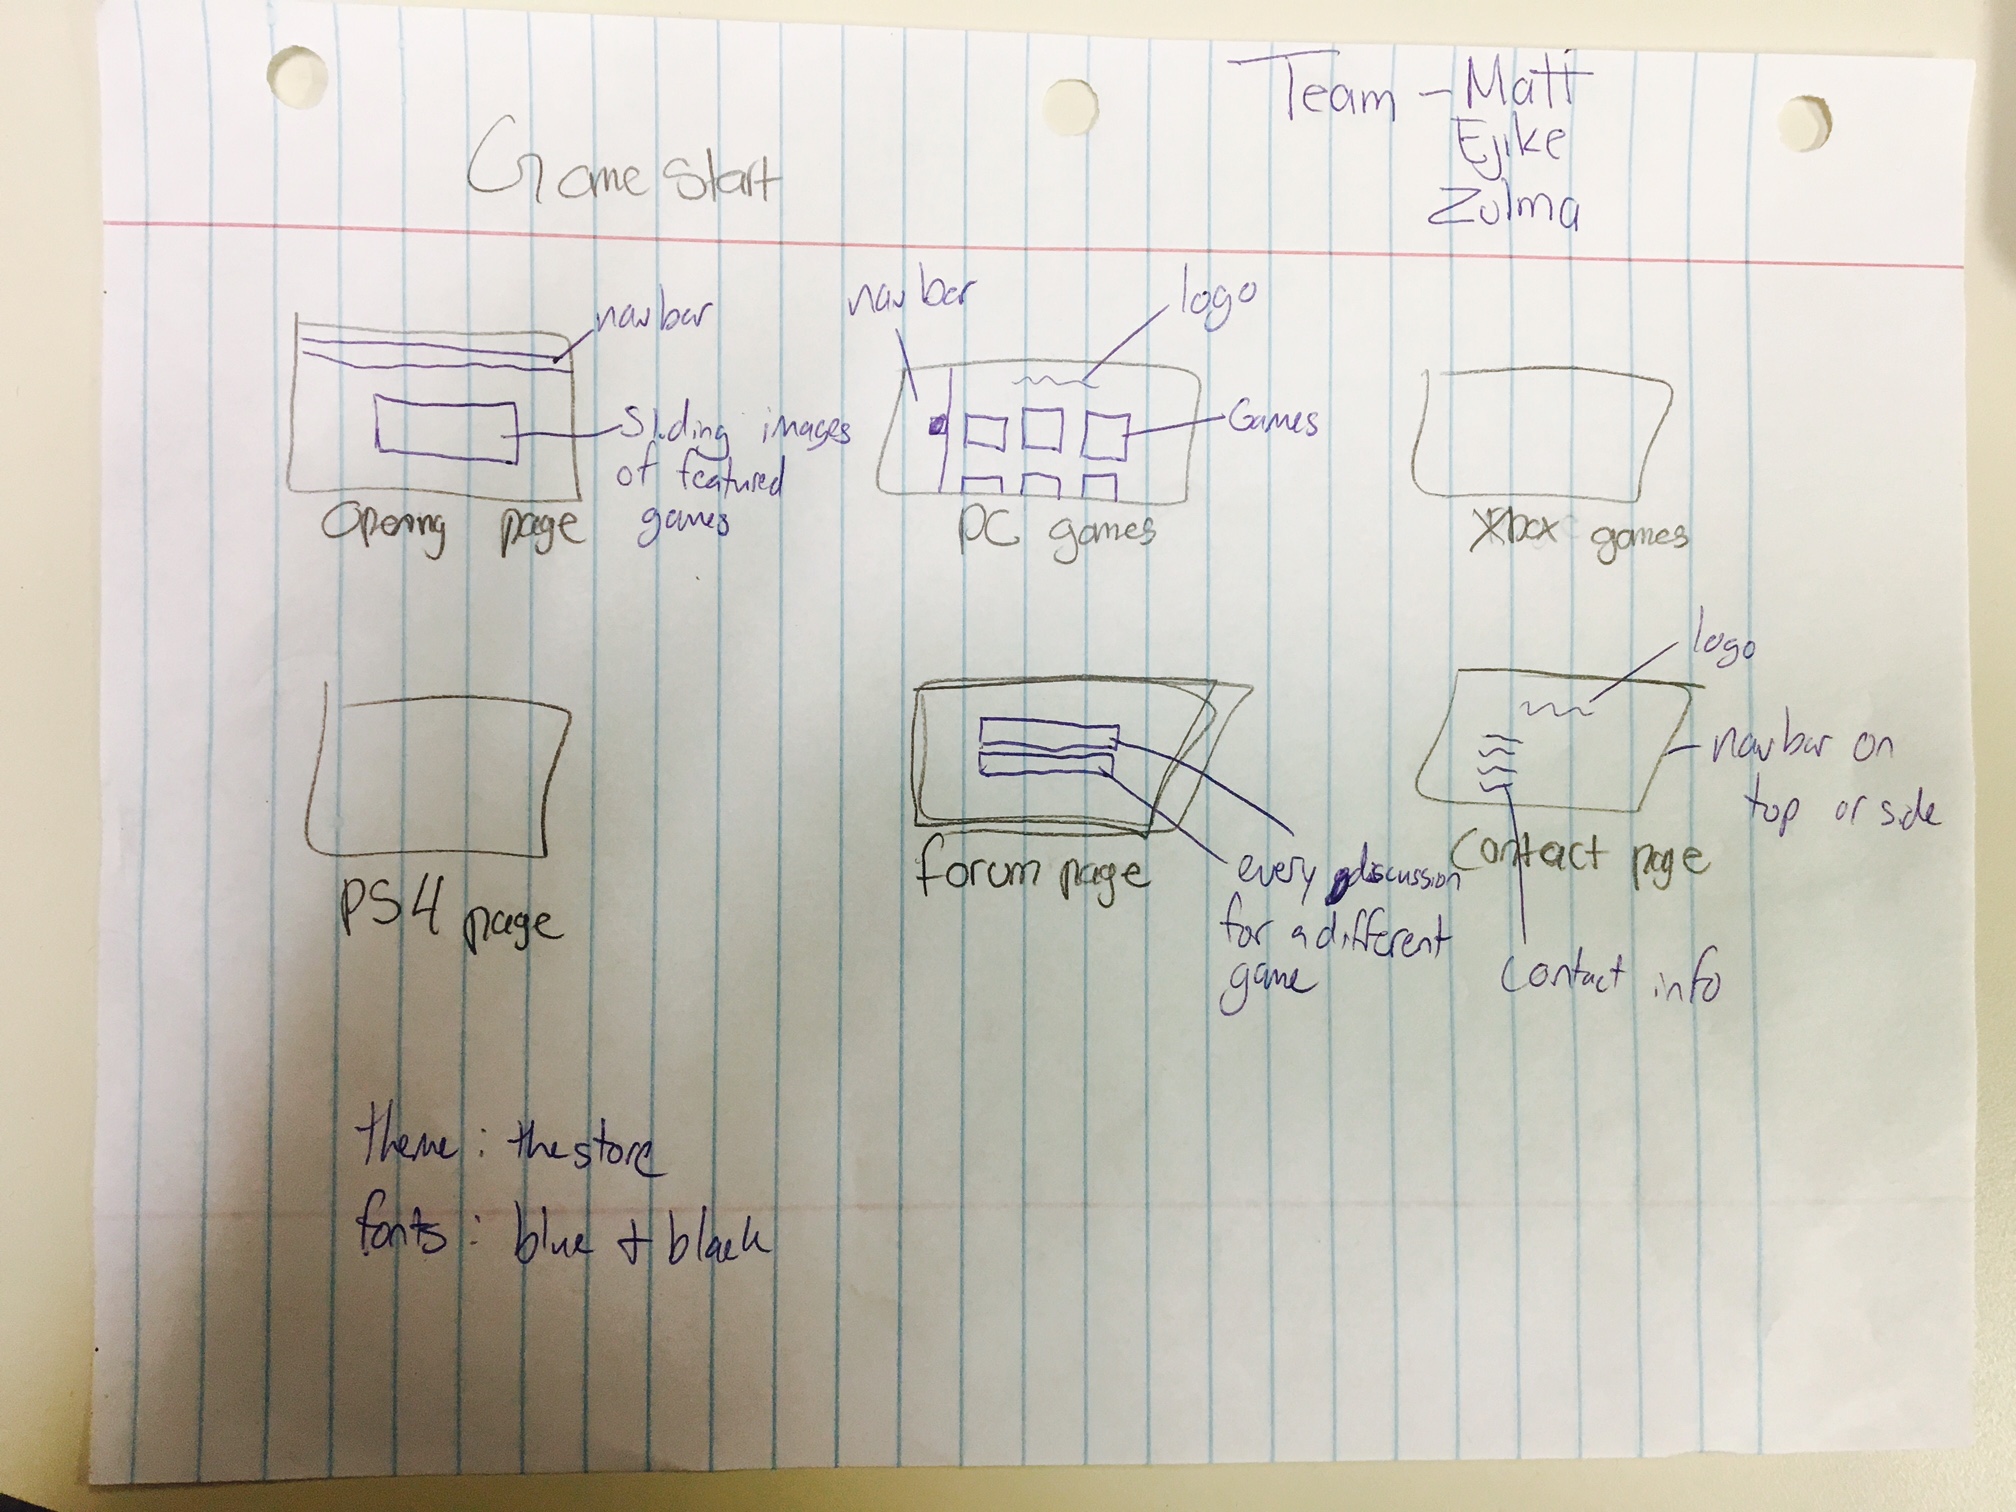 Game Start
Team - Matt
Ejike
Zulma
navbar
Sliding images
of featured
games
Opening page
navbar
logo
Games
PC games
Xbox games
PS4 page
forum page
every discussion
for a different
game
logo
navbar on
top or side
Contact page
Contact info
theme: the store
fonts: blue + black